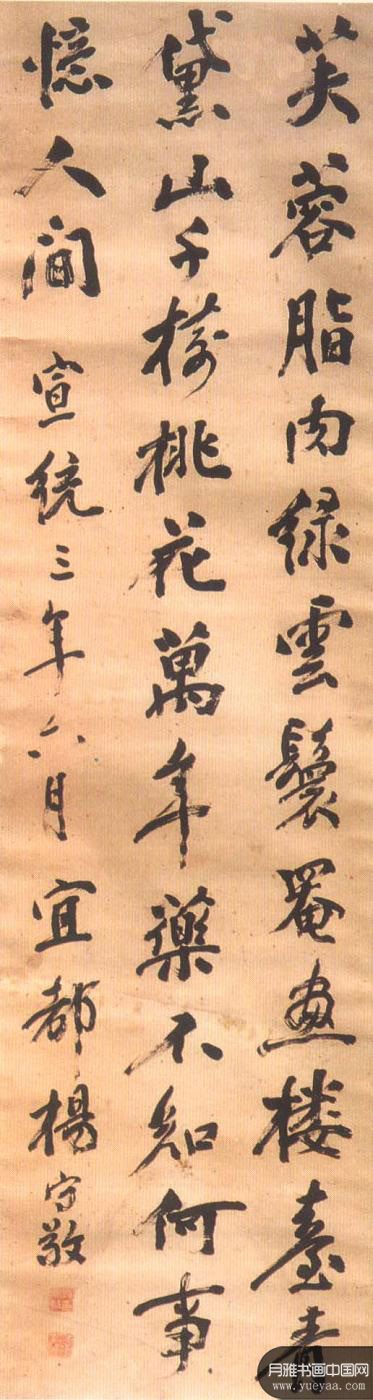 芙蓉脂肉綠雲鬟罨畫樓臺青
黛山千樹桃花萬年藥不知何事
憶人間 宣統三年六月 宜都楊守敬
月雅书画中国网
www.yueyaa.com